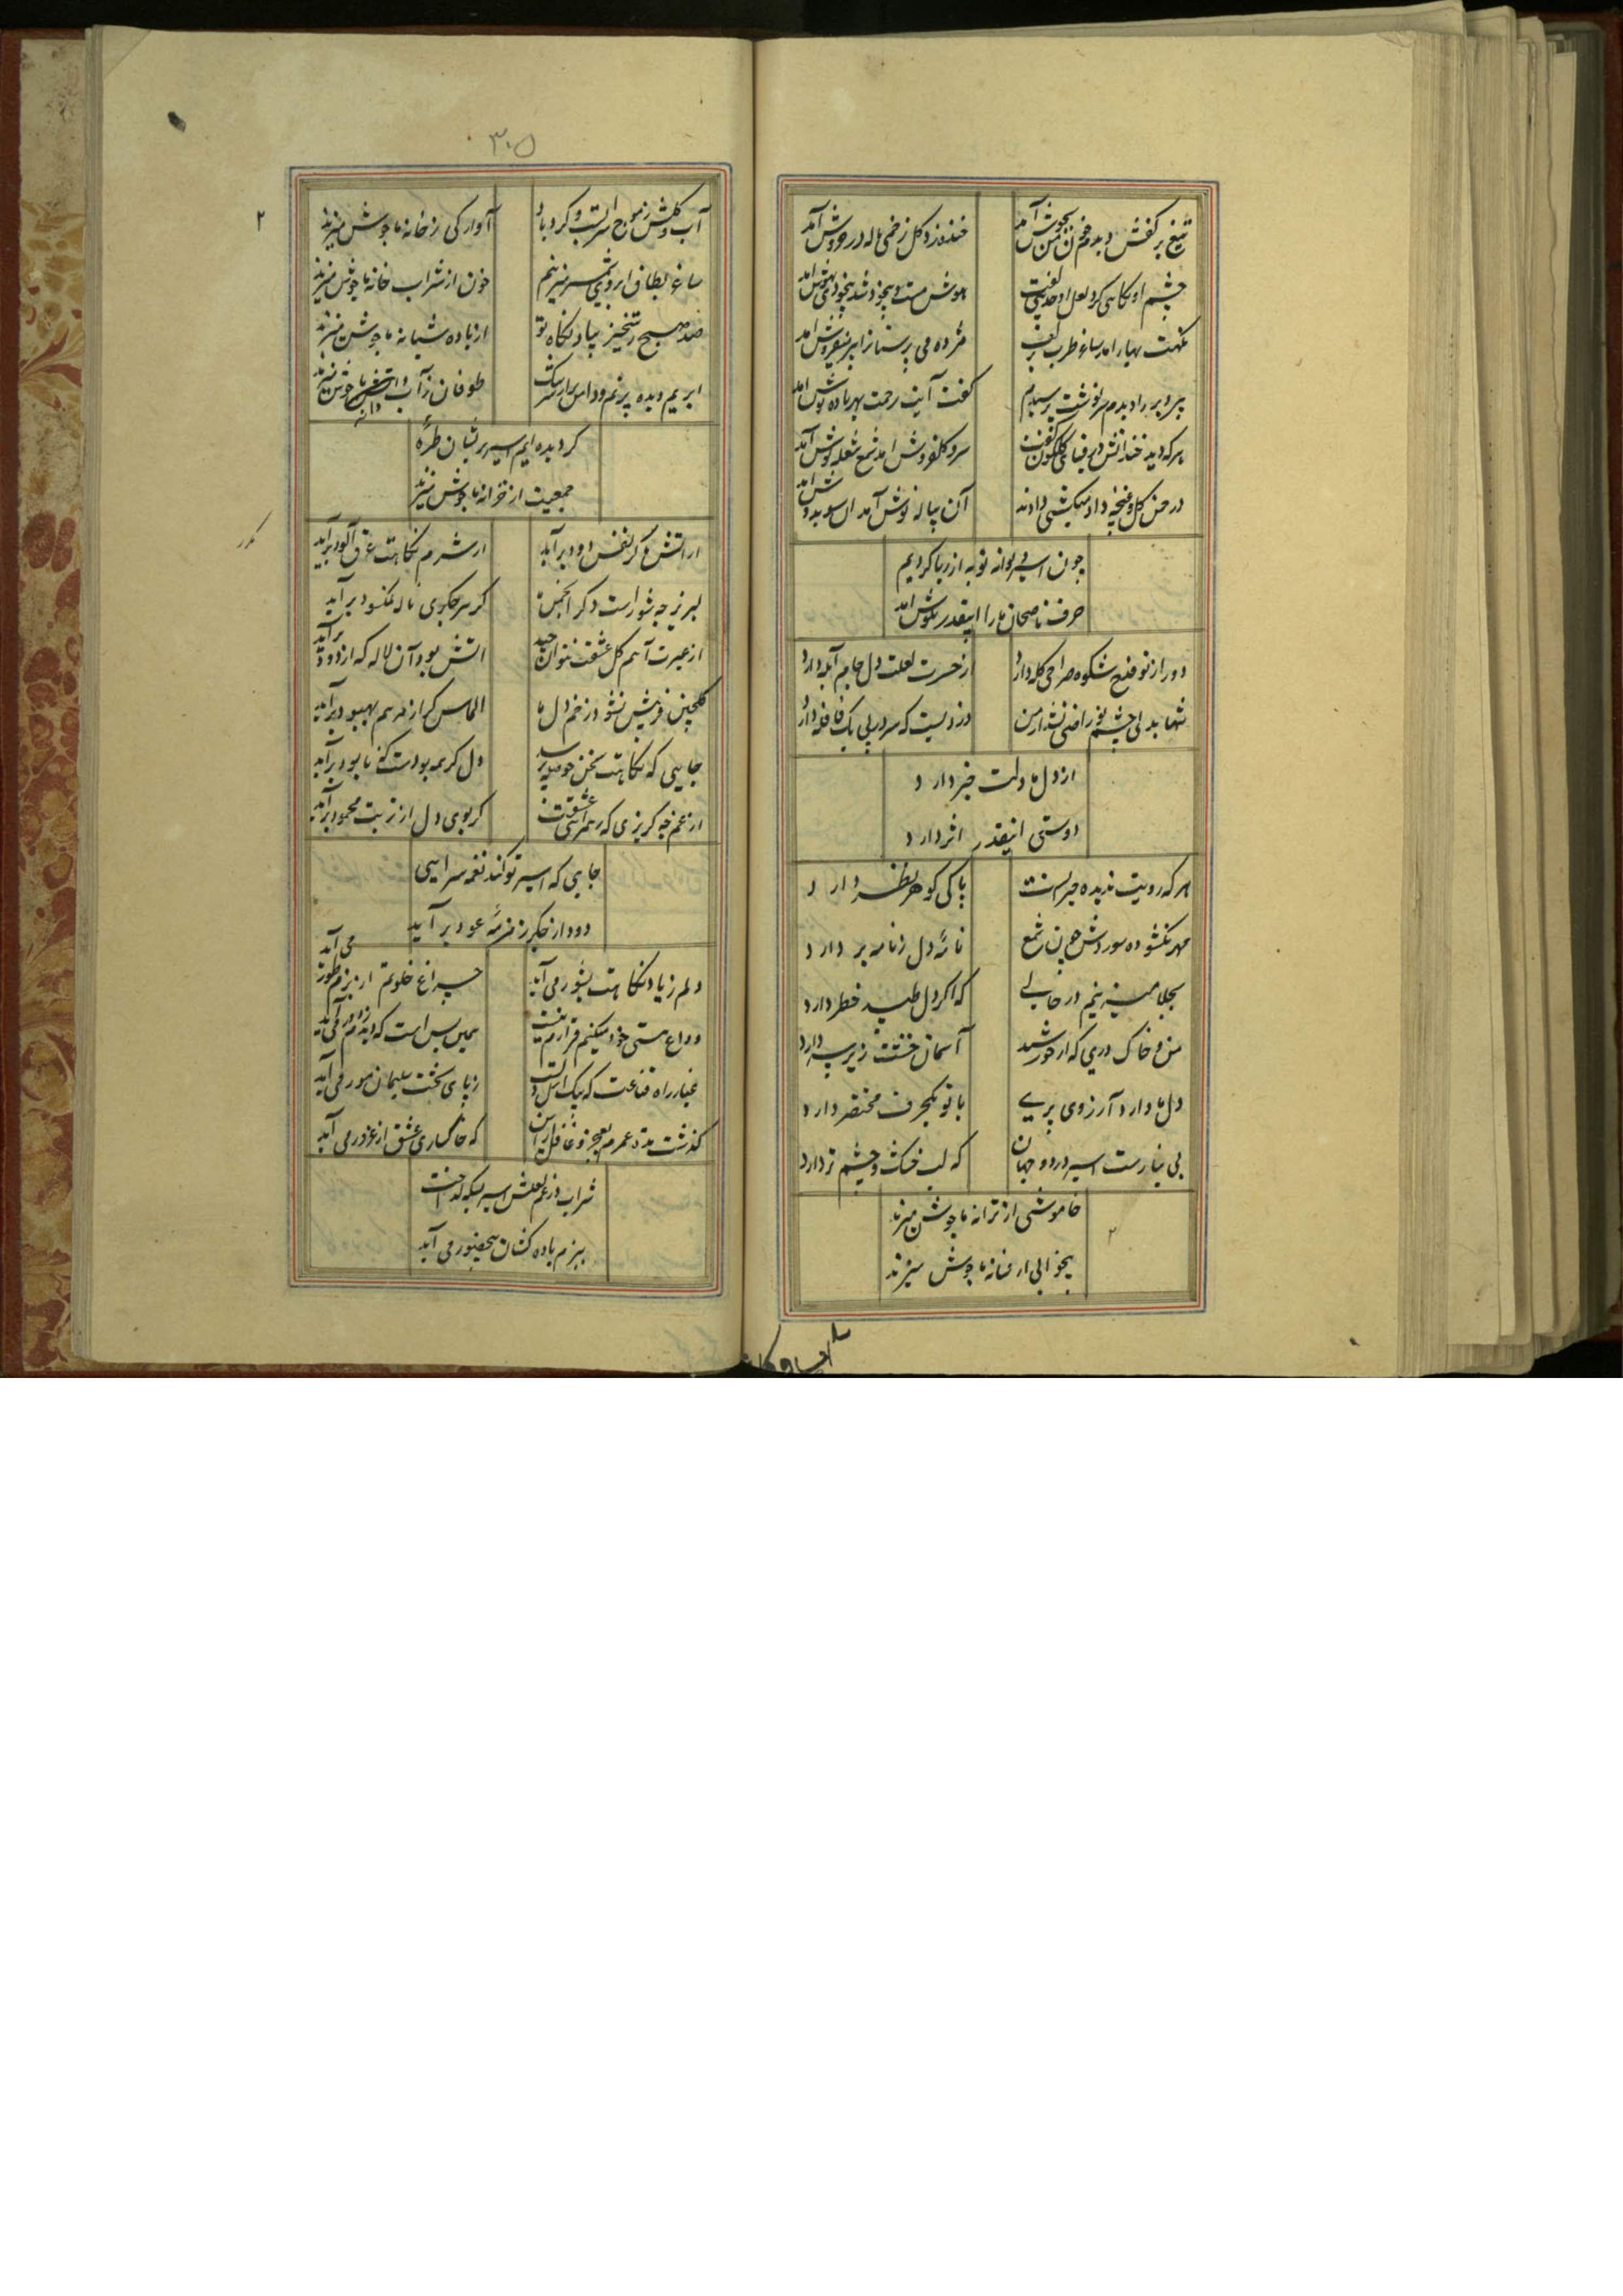 تیغ بر کفش دیدم خون من بجوش آمد
خنده زد گل زخمی ناله در خروش آمد
چشم او نگاهی کرد لعل او حدیثی گفت
هوش مست و بیخود شد بیخودی بهوش امد
نکهت بهار امد ساغر طرب بر کف
مژده می پرستانرا ابر میفروش امد
پیر دیر را دیدم سرنوشت پرسیدم
گفت آیت رحمت بهر باده نوش امد
هرکه دید خندانش در قبای گلگون گفت
سرو گلفروش امد شمع شعله پوش آمد
در چمن گل و غنچه داد میکشی دادند
آن پیاله نوش آمد ان سبو بدوش امد
چون اسیر دیوانه توبه از ریا کردیم
حرف ناصحان ما را اینقدر بگوش امد
دور از تو قدح شکوه صراحی گله دارد
از حسرت لعلت دل جام آبله دارد
تنها بدلی چشم تو راضی نشد از من
دزدیست که سر در پی یک قافله دارد
از دل ما دلت خبر دارد
دوستی اینقدر اثر دارد
هر که رویت ندیده حیرانست
پاکی گوهر نظر دارد
مهر نگشوده سوزدش چون شمع
نامهٔ دل نامه بر دارد
بجلا میزنیم در خیالی
که اگر دل طپید خطر دارد
من و خاک دری که از خورشید
آسمان خشت زیر سر دارد
دل ما دارد آرزوی پری
با تو یکحرف مختصر دارد
بی نیازست اسیر در دو جهان
که لب خشک و چشم تر دارد
خاموشی از ترانه ما جوش میزند
بیخوابی از فسانه ما جوش میزند
۳۰۵
آب و گلش ز موج سراب و گردباد
آوارگی ز خانه ما جوش میزند
ساغر بطاق ابروی شمشیر میزنیم
خون از شراب خانه ما جوش میزند
صد صبح رستخیز بیاد نگاه تو
از باده شبانه ما جوش میزند
ابریم دیده پر نم و دامن پر از سرشک
طوفان ز آب و دانه ما جوش میزند
گردیده ایم اسیر پریشان طرهٔ
جمعیت از خزانه ما جوش میزند
از اتش ما گر نفس دود برآید
از شرم نگاهت عرق آلود برآید
لبریز چه شورست دگر انجمن
گر سر جگری ناله نمکسود برآید
از غیرت آهم گل عشقت نتوان چید
اتش بود آن لاله که از دود برآید
گلچین فریبش نشود زخم دل ما
الماس گر از مرهم بهبود برآید
جایی که نگاهت سخن
دل گر همه بودست که نابود برآید
از غم چه گریزی که رهم آتش عشقت
گر بوی دل از تربت محمود برآید
جایی که اسیر تو کند نغمه سرایی
دود از جگر زمزمهٔ عود برآید
دلم ز یاد نگاهت بشور می آید
چراغ خلوتم از بزم طور می آید
وداع هستی خود میکنم قرارم نیست
همین بس است که دیدم ز دور می آید
غبار راه قناعت که
ز پای تخت سلیمان مور می آید
گذشت مدت عمرم بعجز و غافل ازین
که خاکساری عشق از غرور می آید
شراب در غم لعلش اسیر بسکه گداخت
ببزم باده کشان بیحضور می آید